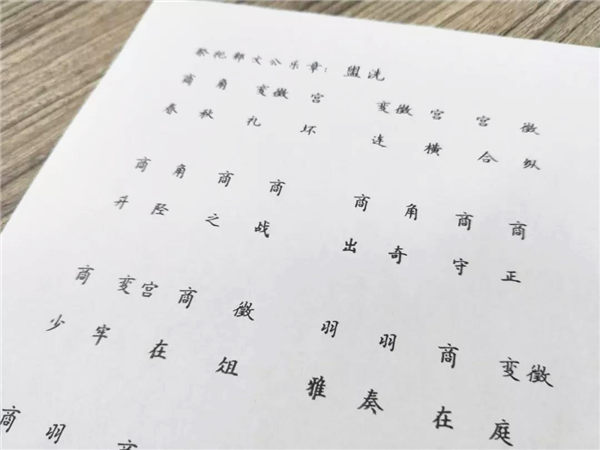 祭祀文公乐章：盥洗
商 角 变徵 宫 变徵 宫 宫 徵
春 秋 礼 坏 连 横 合 纵
商 角 商 商 商 角 商 商
井 陉 之 战 出 奇 守 正
商 变宫 商 徵 羽 羽 商 变徵
少 牢 在 俎 雅 奏 在 庭
商 羽